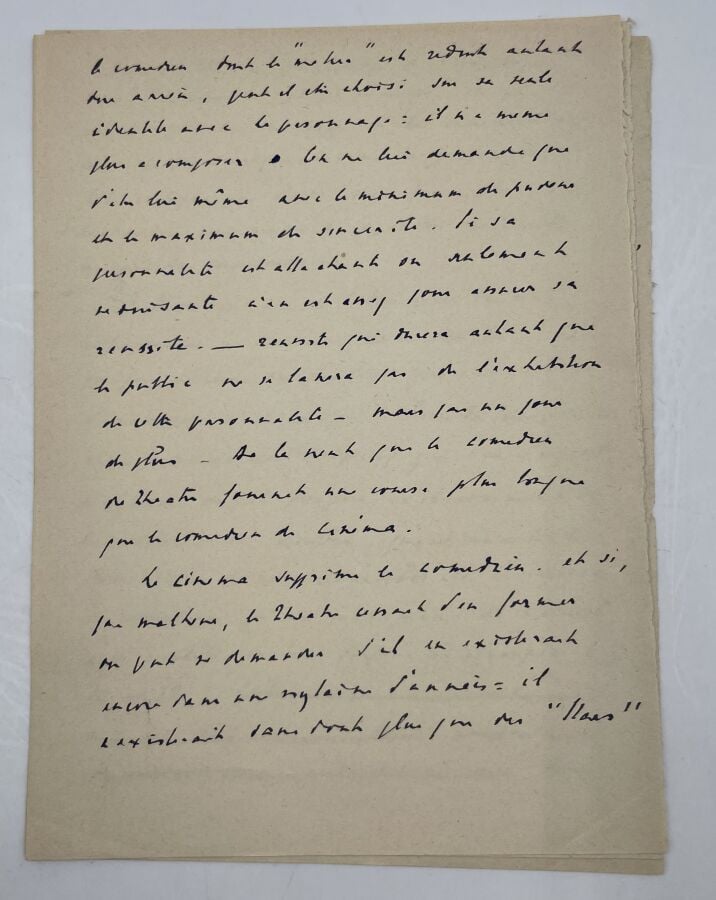 le comedien dont le "metier" est reduit autant
que à rien, peut il etre choisi sur sa seule
identité avec le personnage = il n'a meme
plus a composer. On ne lui demande que
d'etre lui même avec le minimum de pudeur
et le maximum de sincerité. Si sa
personnalite est attachante ou seulement
seduisante c'en est assez pour assurer sa
reussite. — reussite qui durera autant que
le public ne se lassera pas de l'exhibition
de cette personnalité — mais pas un jour
de plus — De la vient que le comedien
de Theatre fournit une course plus longue
que le comedien de cinéma.
Le cinema supprime le comedien. et si,
par malheur, le Theatre cessait d'en former
on peut se demander s'il en existerait
encore dans une vingtaine d'années = il
n'existerait sans doute plus que des "Stars"